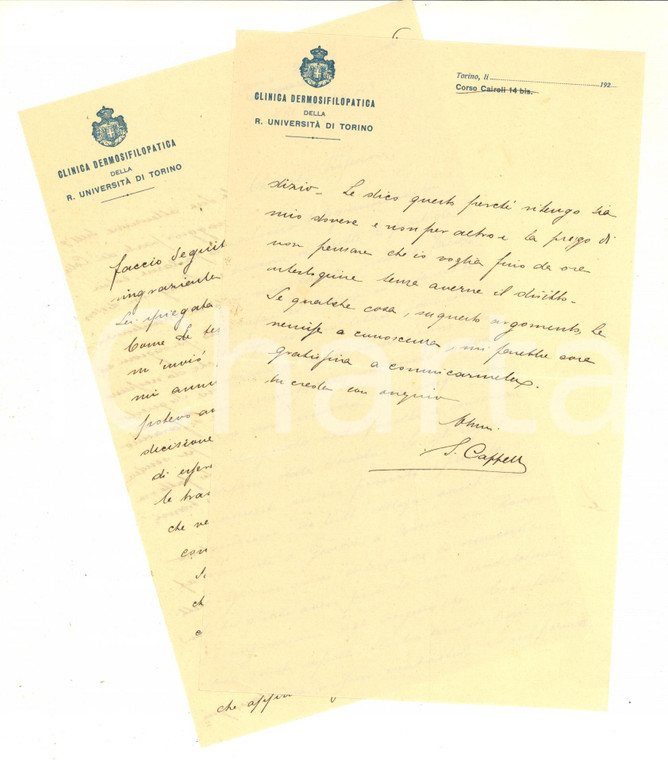 CLINICA DERMOSIFILOPATICA
DELLA
R. UNIVERSITÀ DI TORINO
faccio seguit
ingraziente
Lei spiegata
Come Le te
m'inviò
mi annu
potevo an
decisione
di esser
le tras
che ve
con
che appro
CLINICA DERMOSIFILOPATICA
DELLA
R. UNIVERSITÀ DI TORINO
Torino, li 192
Corso Cairoli 14 bis.
dizio - Le dico questo perché ritengo sia
mio dovere e non per altro e la prego di
non pensare che io voglia fino da ora
interloquire senza averne il diritto -
Se qualche cosa, su questo argomento, Le
venisse a conoscenza, mi farebbe cosa
gratissima a comunicarmela.
Mi creda con ossequio
S. Cappelli
Charta